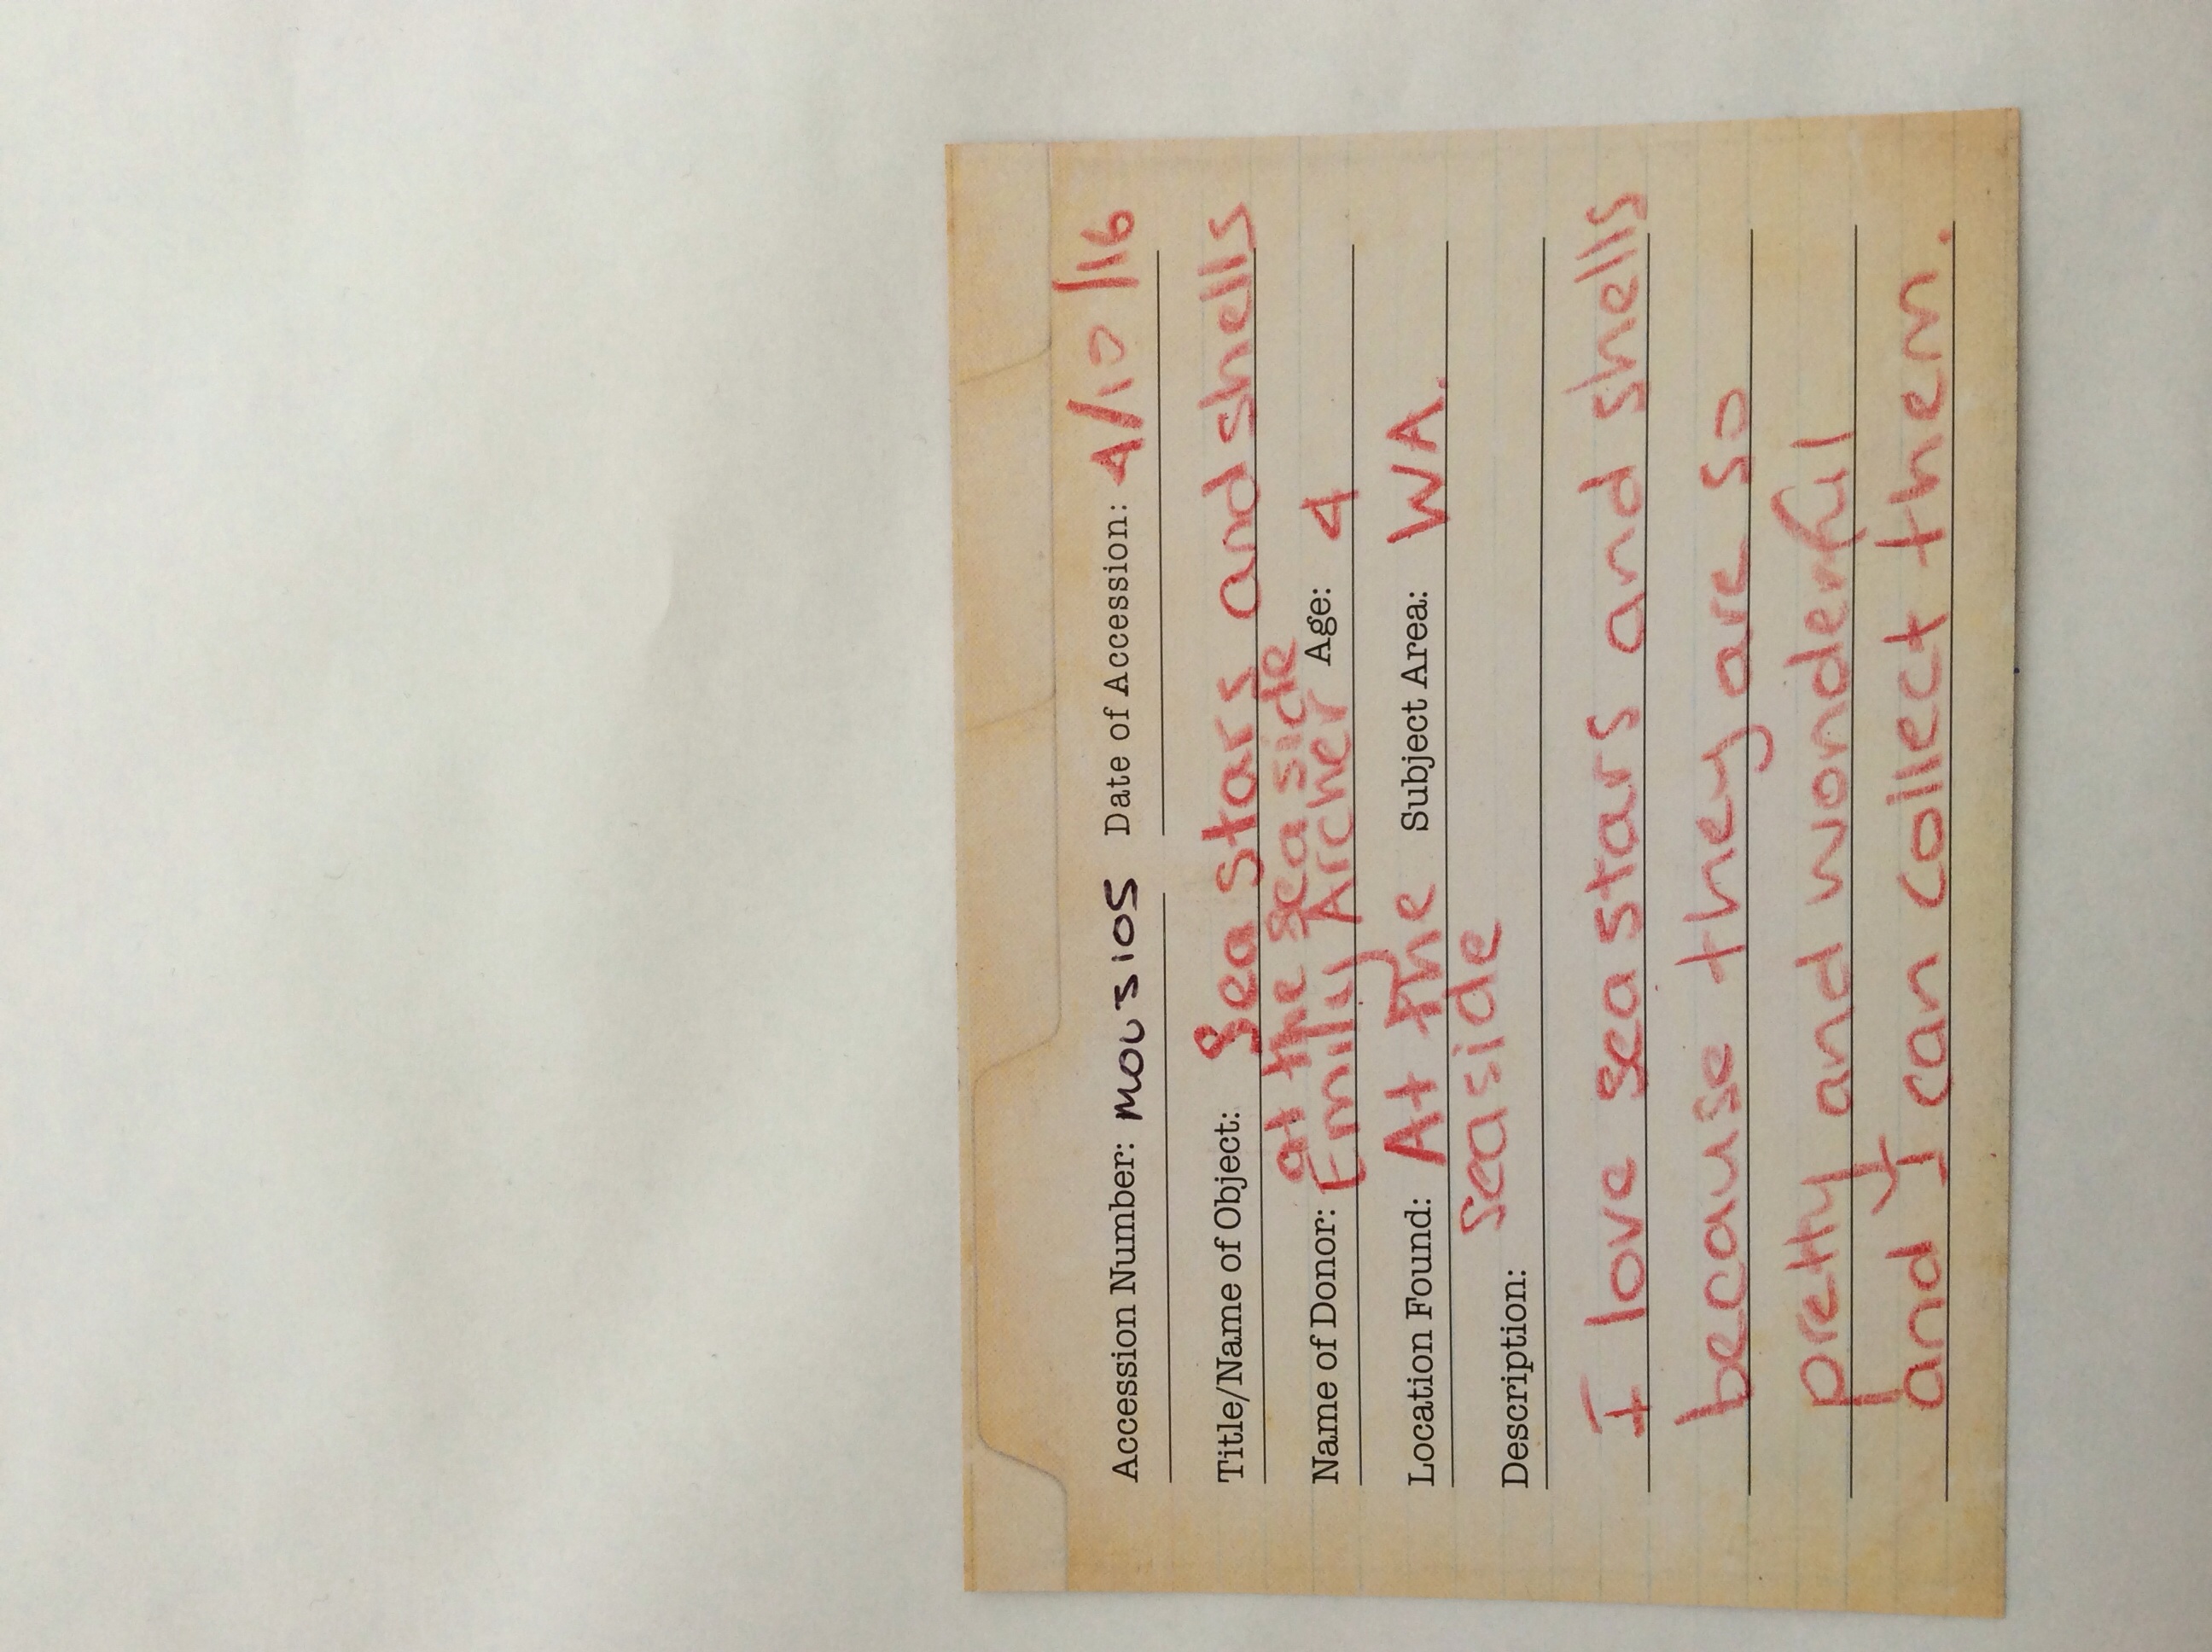 Accession Number: MOU5105 Date of Accession: 4/10/16
Title/Name of Object: Sea stars and shells
at the sea side
Name of Donor: Emily Archer Age: 4
Location Found: At the Subject Area: WA.
seaside
Description:
I love sea stars and shells
because they are so
pretty and wonderful
and I can collect them.